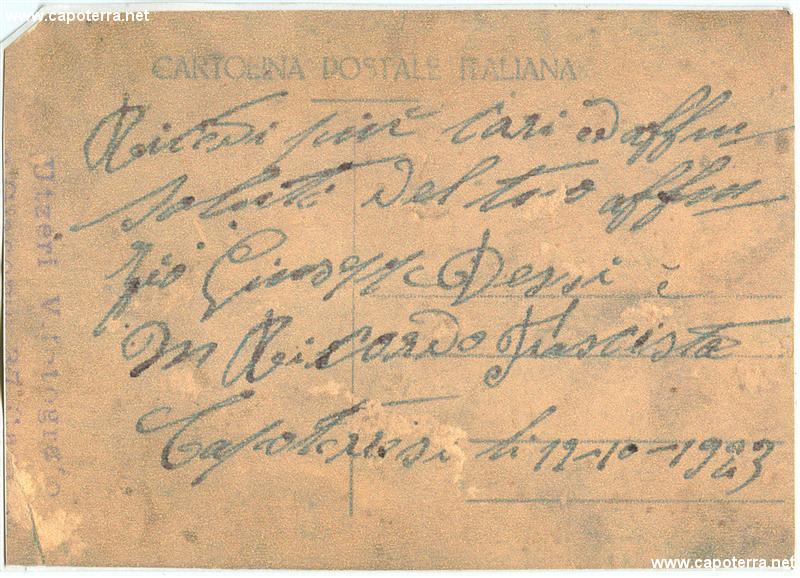 www.capoterra.net
CARTOLINA POSTALE ITALIANA
Ricevi più cari ed affmi
saluti del tuo affmo
zio Giuseppe Dessi è
un Ricordo Fascista
Capoterresi li 12-10-1923
Utzeri V. Fotografo
www.capoterra.net